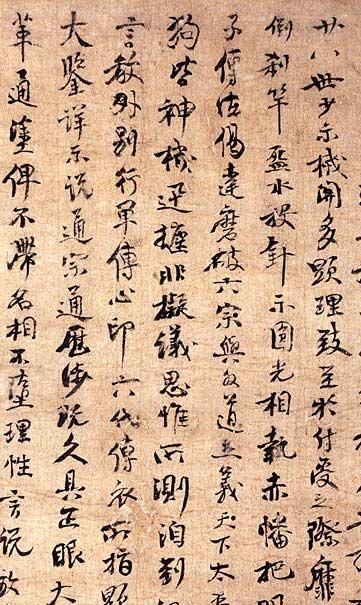 廿八世少示機關多顯理致至於付受之際靡
倒刹竿盋水投針示圓光相執赤幡把明
子傳法偈達磨破六宗與外道立義天下太平
狗皆神機迅捷非擬議思惟所測洎到
言教外別行單傳心印六代傳衣所指顯
大鑒詳示説通宗通歷涉既久具正眼大
革通塗俾不滯名相不墮理性言説放